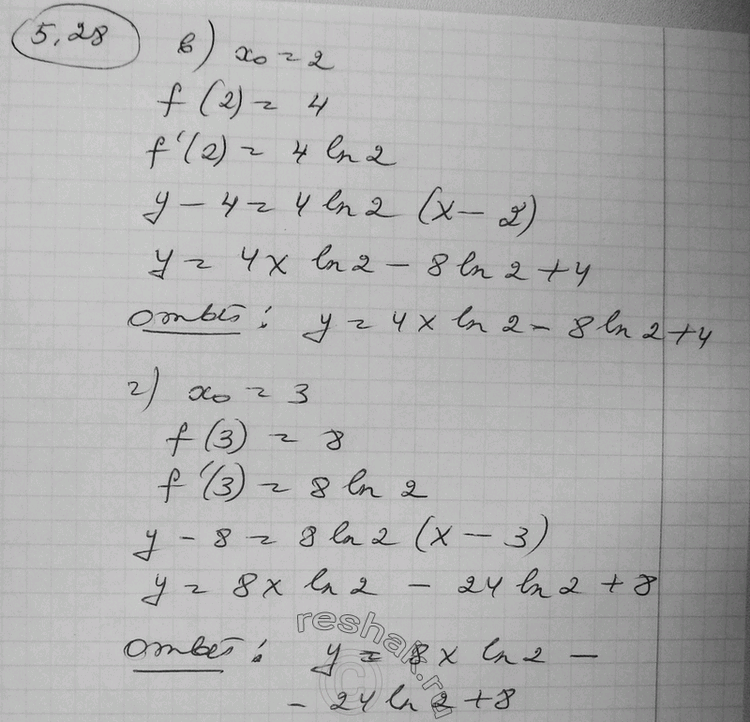 5.28
в) x₀ = 2
f(2) = 4
f'(2) = 4 ln 2
y - 4 = 4 ln 2 (x - 2)
y = 4x ln 2 - 8 ln 2 + 4
Ответ: y = 4x ln 2 - 8 ln 2 + 4
г) x₀ = 3
f(3) = 8
f'(3) = 8 ln 2
y - 8 = 8 ln 2 (x - 3)
y = 8x ln 2 - 24 ln 2 + 8
Ответ: y = 8x ln 2 -
- 24 ln 2 + 8
reshak.ru
©